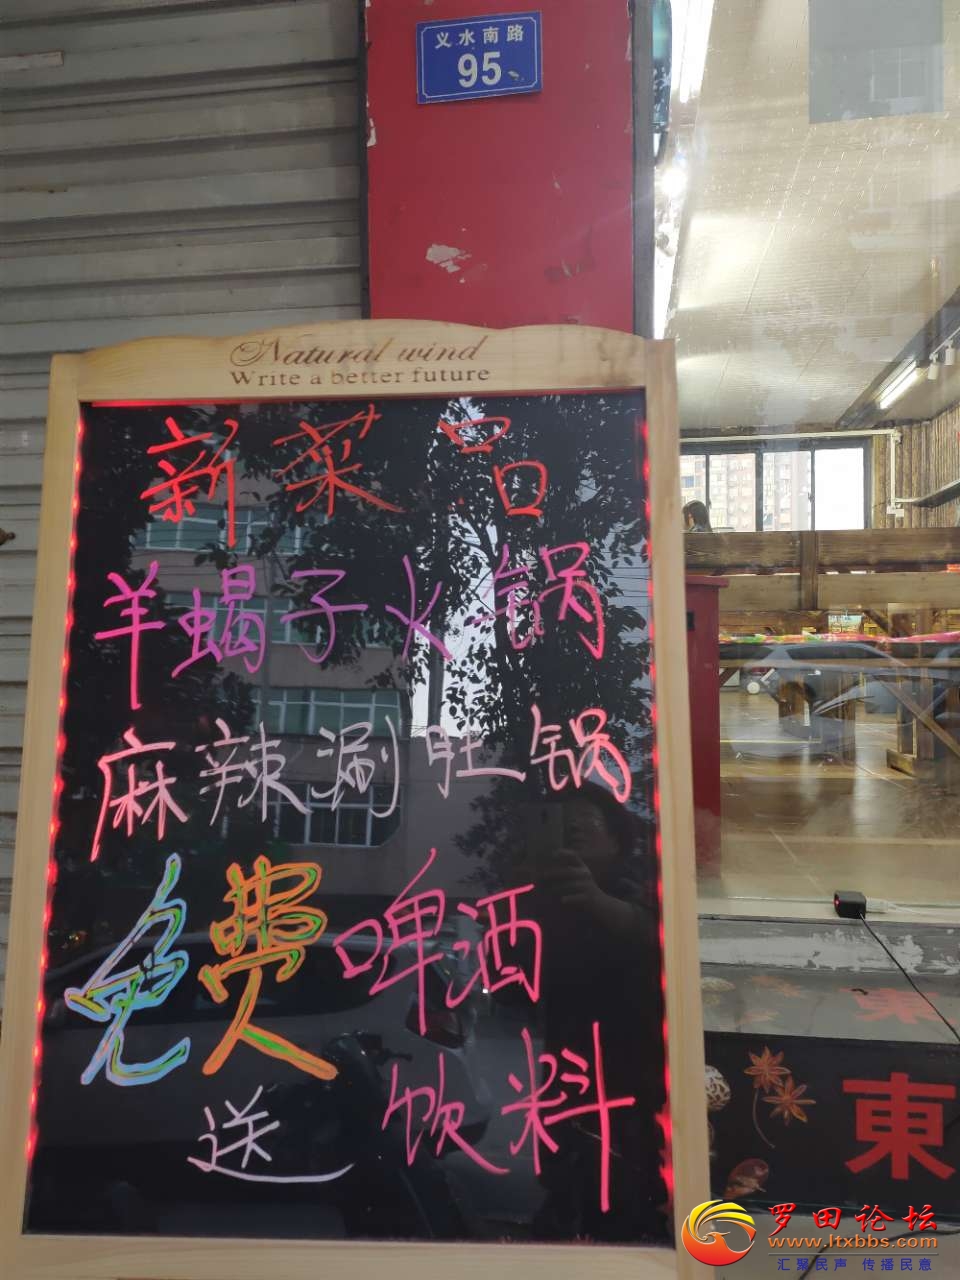 义水南路
95
Natural wind
Write a better future
新菜品
羊蝎子火锅
麻辣涮肚锅
免费啤酒
送 饮料
東
東
罗田论坛
www.ltxbbs.com
汇聚民声 传播民意